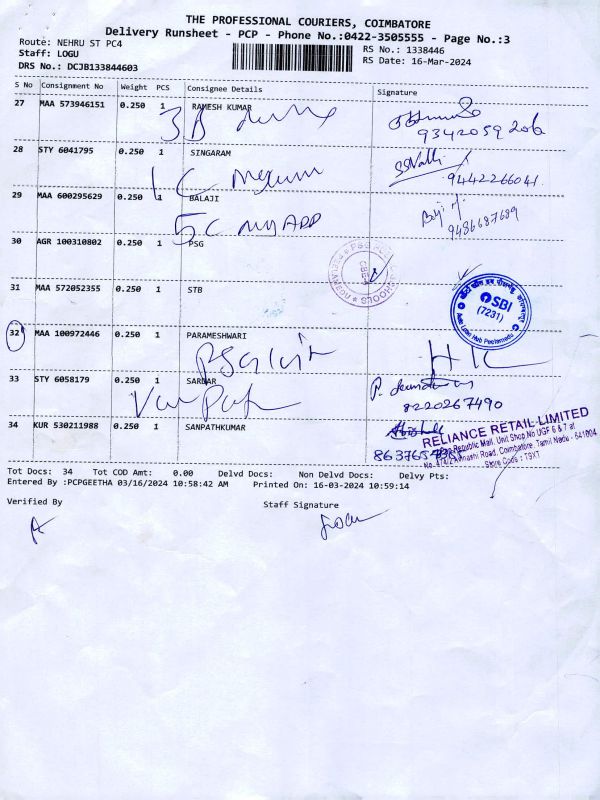 THE PROFESSIONAL COURIERS, COIMBATORE
Delivery Runsheet - PCP - Phone No.:0422-3505555 - Page No.:3
Route: NEHRU ST PC4 RS No.: 1338446
Staff: LOGU RS Date: 16-Mar-2024
DRS No.: DCJB133844603
S No Consignment No Weight PCS Consignee Details Signature
27 MAA 573946151 0.250 1 RAMESH KUMAR
3B
28 STY 6041795 0.250 1 SINGARAM
1C 9442266041
29 MAA 600295629 0.250 1 BALAJI
5C 9486687689
30 AGR 100310802 0.250 1 PSG
31 MAA 572052355 0.250 1 STB
SBI
(7231)
32 MAA 100972446 0.250 1 PARAMESHWARI
33 STY 6058179 0.250 1 SARDAR
8220267490
34 KUR 530211988 0.250 1 SANPATHKUMAR
RELIANCE RETAIL LIMITED
Republic Mall, Unit Shop No UGF 6 & 7 at
Avinashi Road, Coimbatore, Tamil Nadu - 641004
Store Code : T9XT
Tot Docs: 34 Tot COD Amt: 0.00 Delvd Docs: Non Delvd Docs: Delvy Pts:
Entered By :PCPGEETHA 03/16/2024 10:58:42 AM Printed On: 16-03-2024 10:59:14
Verified By Staff Signature